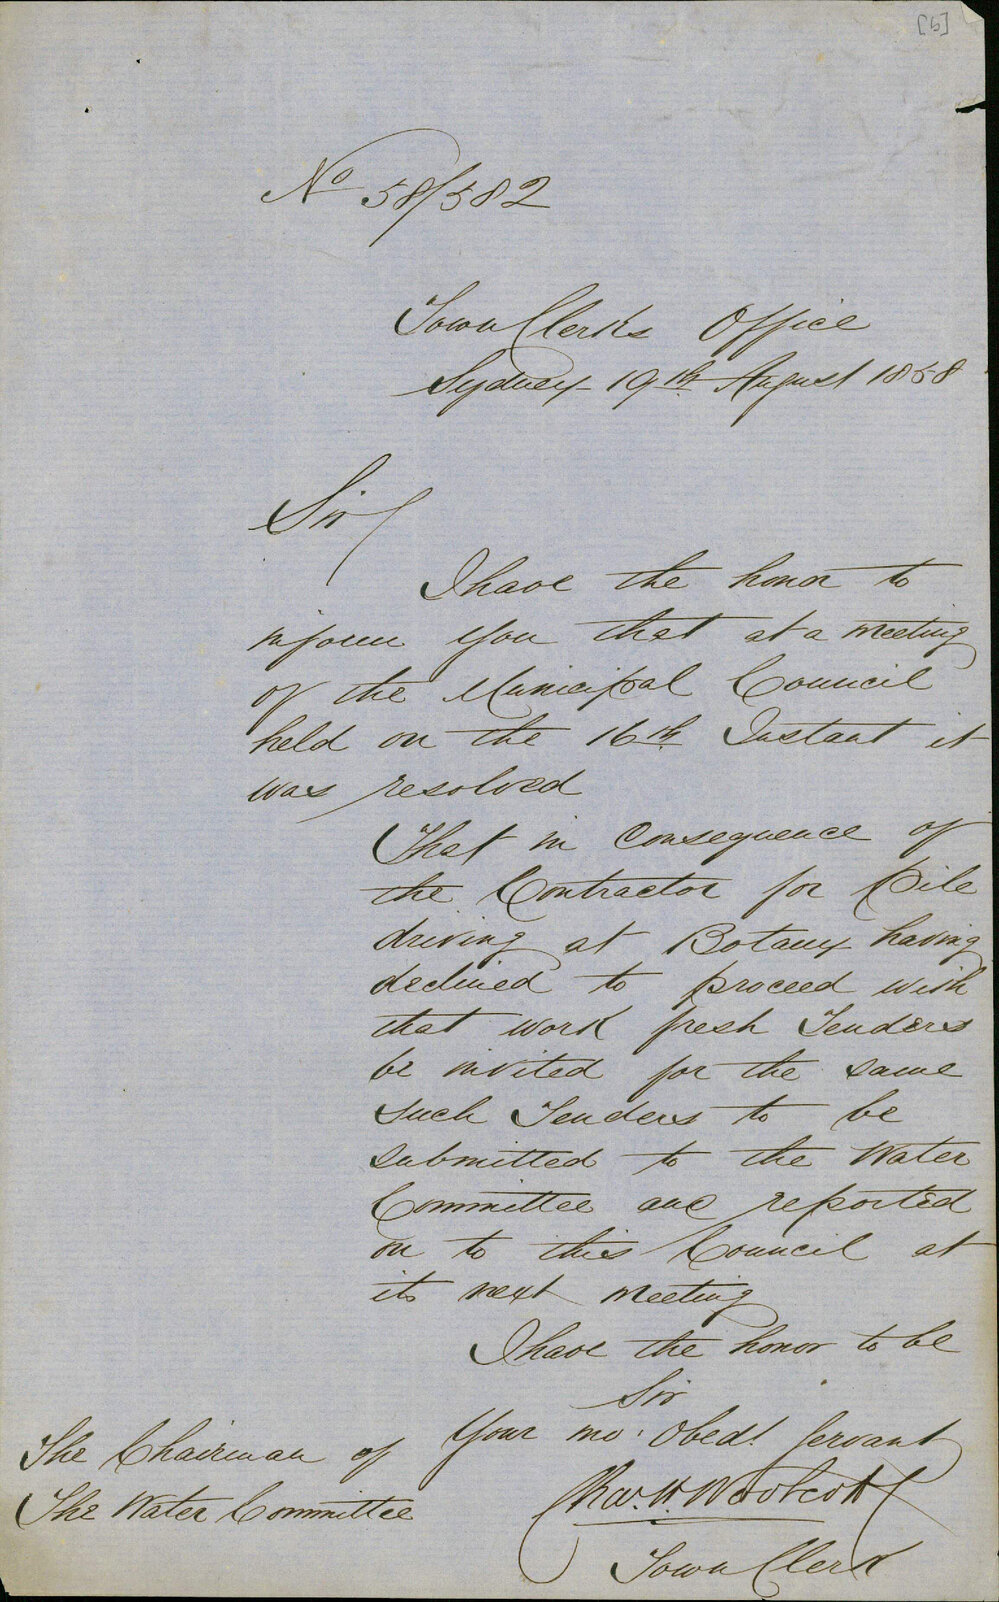 [5]
No 58/582
Town Clerks Office
Sydney 19th August 1858
Sir
I have the honor to
inform you that at a meeting
of the Municipal Council
held on the 16th Instant it
was resolved
That in consequence of
the Contractor for Pile
driving at Botany having
declined to proceed with
that work fresh Tenders
be invited for the same
such Tenders to be
submitted to the Water
Committee and reported
on to this Council at
its next meeting
I have the honor to be
Sir
Your mo. Obedt Servant
Chas. H. Woolcott
Town Clerk
The Chairman of
The Water Committee